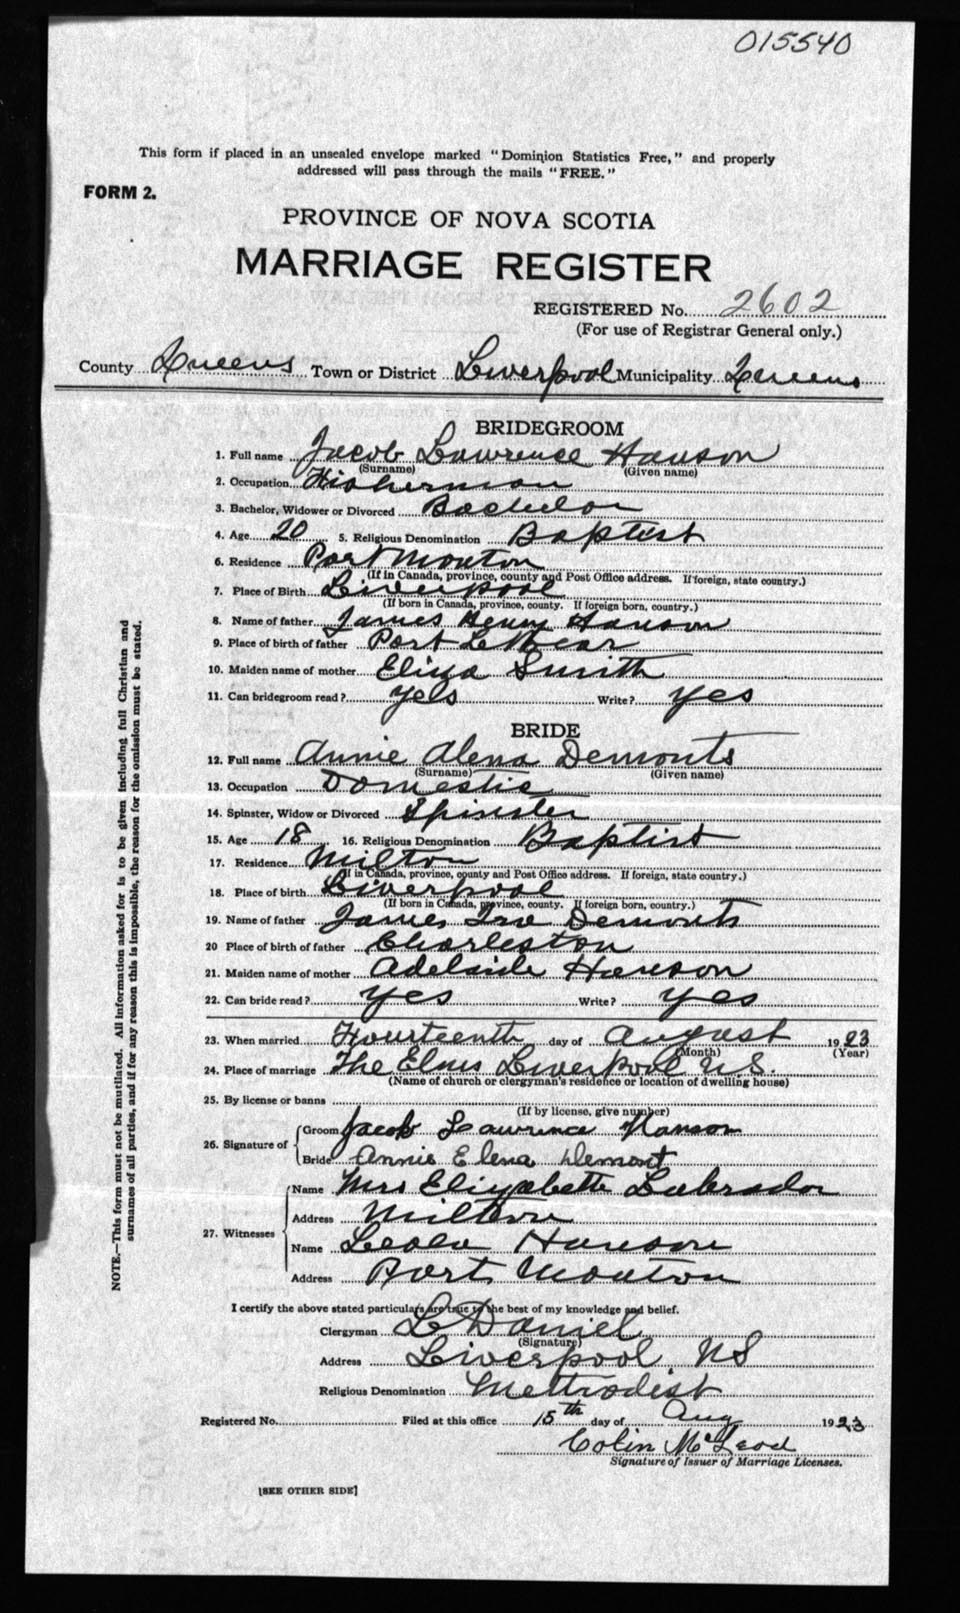 015540
This form if placed in an unsealed envelope marked "Dominion Statistics Free," and properly
addressed will pass through the mails "FREE."
FORM 2.
PROVINCE OF NOVA SCOTIA
MARRIAGE REGISTER
REGISTERED No. 2602
(For use of Registrar General only.)
County Queens Town or District Liverpool Municipality Queens
BRIDEGROOM
1. Full name Jacob Lawrence Hanson
(Surname) (Given name)
2. Occupation Fisherman
3. Bachelor, Widower or Divorced Bachelor
4. Age 20 5. Religious Denomination Baptist
6. Residence Port Mouton
(If in Canada, province, county and Post Office address. If foreign, state country.)
7. Place of Birth Liverpool
(If born in Canada, province, county. If foreign born, country.)
8. Name of father James Henry Hanson
9. Place of birth of father Port
10. Maiden name of mother Eliza Smith
11. Can bridegroom read? yes Write? yes
BRIDE
12. Full name Annie Alena Demonts
(Surname) (Given name)
13. Occupation Domestic
14. Spinster, Widow or Divorced Spinster
15. Age 18 16. Religious Denomination Baptist
17. Residence Milton
(If in Canada, province, county and Post Office address. If foreign, state country.)
18. Place of birth Liverpool
(If born in Canada, province, county. If foreign born, country.)
19. Name of father James Demonts
20 Place of birth of father Charleston
21. Maiden name of mother Adelaide Hanson
22. Can bride read? yes Write? yes
23. When married Fourteenth day of August 1923
(Month) (Year)
24. Place of marriage The Elms Liverpool N.S.
(Name of church or clergyman's residence or location of dwelling house)
25. By license or banns
(If by license, give number)
26. Signature of Groom Jacob Lawrence Hanson
Bride Annie Elena Demont
27. Witnesses Name Mrs Elizabeth Labrador
Address Milton
Name Leola Hanson
Address Port Mouton
I certify the above stated particulars are true to the best of my knowledge and belief.
Clergyman L Daniel
(Signature)
Address Liverpool, NS
Religious Denomination Methodist
Registered No. Filed at this office 15th day of Aug 1923
Colin McLeod
Signature of Issuer of Marriage Licenses.
[SEE OTHER SIDE]
NOTE.—This form must not be mutilated. All information asked for is to be given including full Christian and
surnames of all parties, and if for any reason this is impossible, the reason for the omission must be stated.